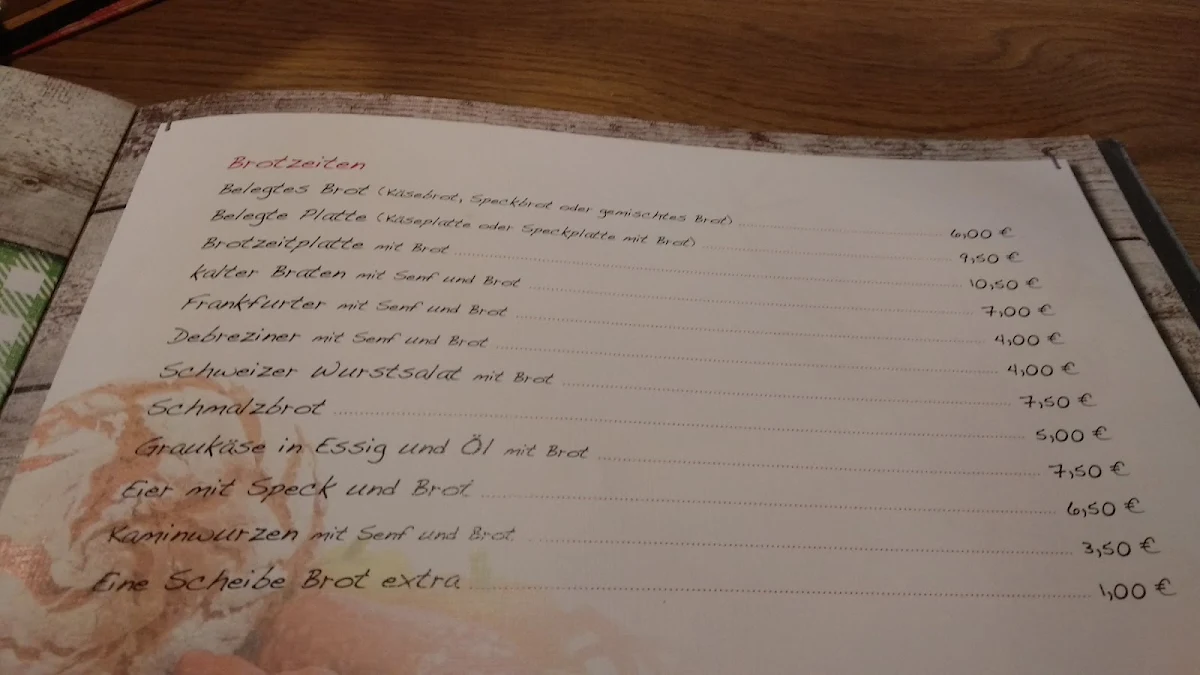 Brotzeiten
Belegtes Brot (Käsebrot, Speckbrot oder gemischtes Brot) 6,00 €
Belegte Platte (Käseplatte oder Speckplatte mit Brot) 9,50 €
Brotzeitplatte mit Brot 10,50 €
Kalter Braten mit Senf und Brot 7,00 €
Frankfurter mit Senf und Brot 4,00 €
Debreziner mit Senf und Brot 4,00 €
Schweizer Wurstsalat mit Brot 7,50 €
Schmalzbrot 5,00 €
Graukäse in Essig und Öl mit Brot 7,50 €
Eier mit Speck und Brot 6,50 €
Kaminwurzen mit Senf und Brot 3,50 €
Eine Scheibe Brot extra 1,00 €